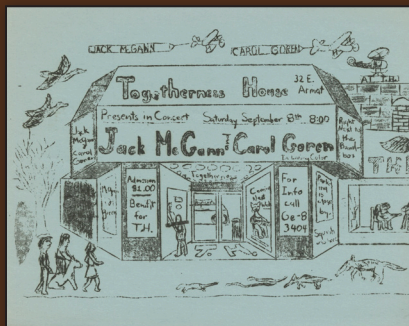 JACK McGANN
CAROL GOREN
AT T.H.
Togetherness House
32 E. Armat
Presents in Concert Saturday September 8th 8:00
Jack McGann & Carol Goren
In Living Color
Jack McGann Carol Goren
Right Next to the
Admission $1.00 Benefit for T.H.
Togetherness
For Info call Ge-8 3404